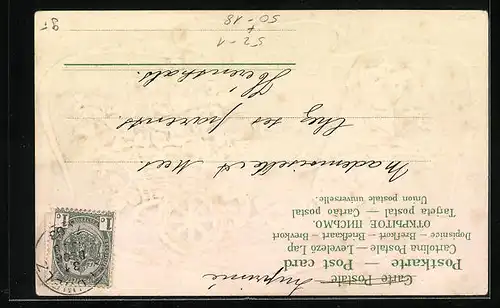 Carte Postale — Imprimé
Postkarte — Post card
Cartolina Postale — Levelezo Lap
Dopisnice — Brefkort — Briefkaart — Brevkort
ОТКРЫТОЕ ПИСЬМО.
Tarjeta postal — Cartão postal
Union postale universelle.
Mademoiselle
chez ses parents.
Herenthals.
52-1
50-18
1c 1c